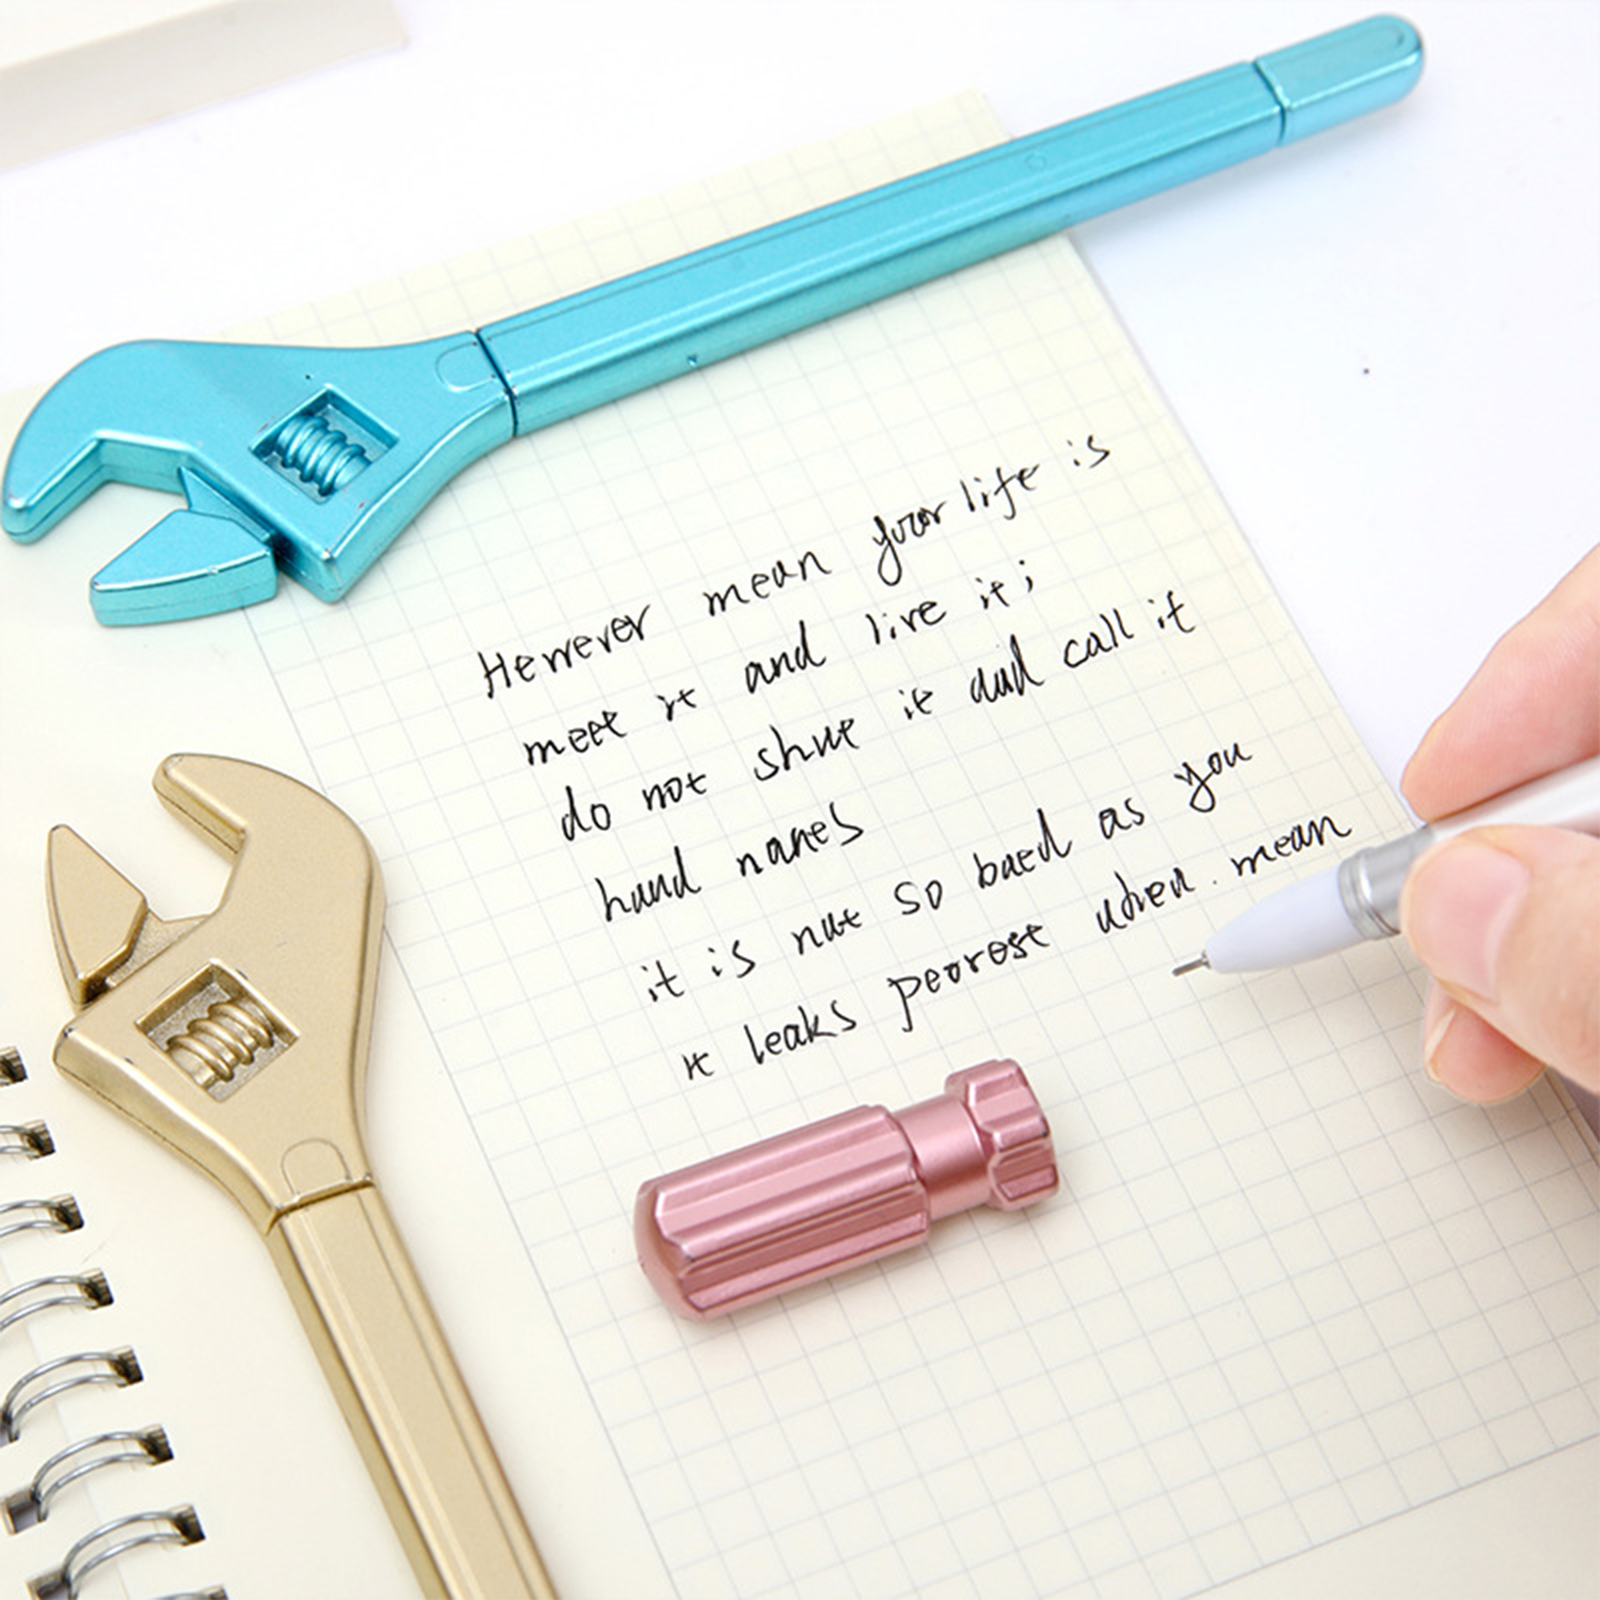 However mean your life is
meet it and live it;
do not shut it and call it
hund names
it is not so baed as you
it leaks peorost when mean